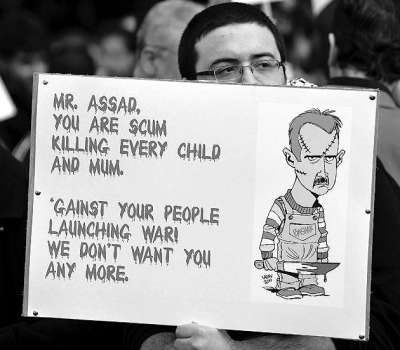 MR. ASSAD,
YOU ARE SCUM
KILLING EVERY CHILD
AND MUM.
'GAINST YOUR PEOPLE
LAUNCHING WAR!
WE DON'T WANT YOU
ANY MORE.